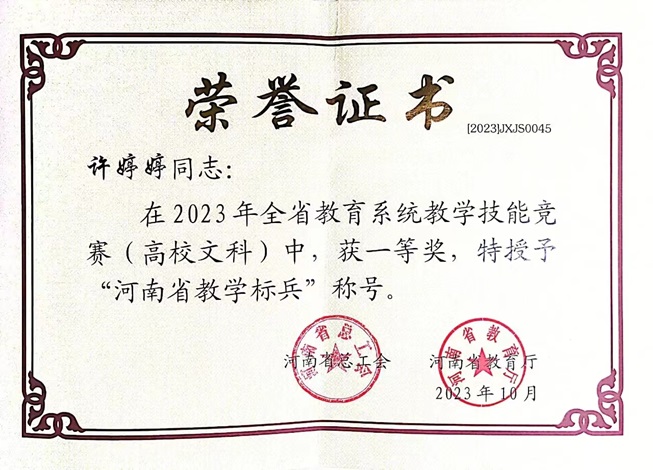 荣誉证书
[2023]JXJS0045
许婷婷同志：
在2023年全省教育系统教学技能竞
赛（高校文科）中，获一等奖，特授予
“河南省教学标兵”称号。
河南省总工会
河南省教育厅
河南省总工会
河南省教育厅
2023年10月